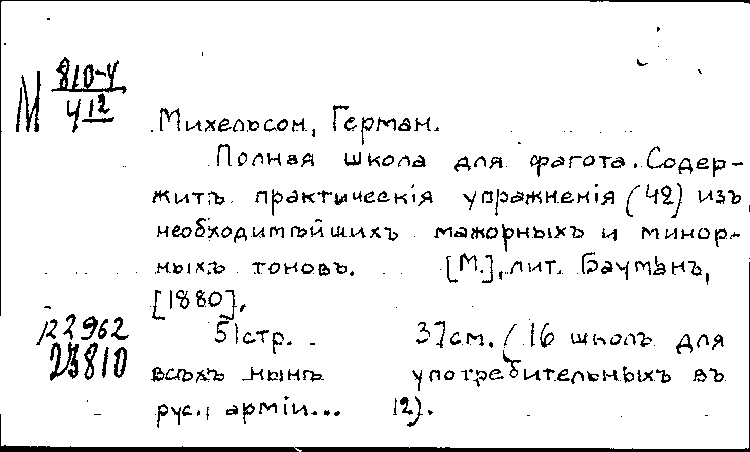 М 810-4
4 12
Михельсон, Герман.
Полная школа для фагота. Содер-
житъ практическiя упражненiя (42) изъ
необходимѣйшихъ мажорныхъ и минор-
ныхъ тоновъ. [М.], лит. Бауманъ,
[1880].
51стр. 37см. (16 школъ для
всѣхъ нынѣ употребительныхъ въ
рус., армiи... 12).
22962
23810